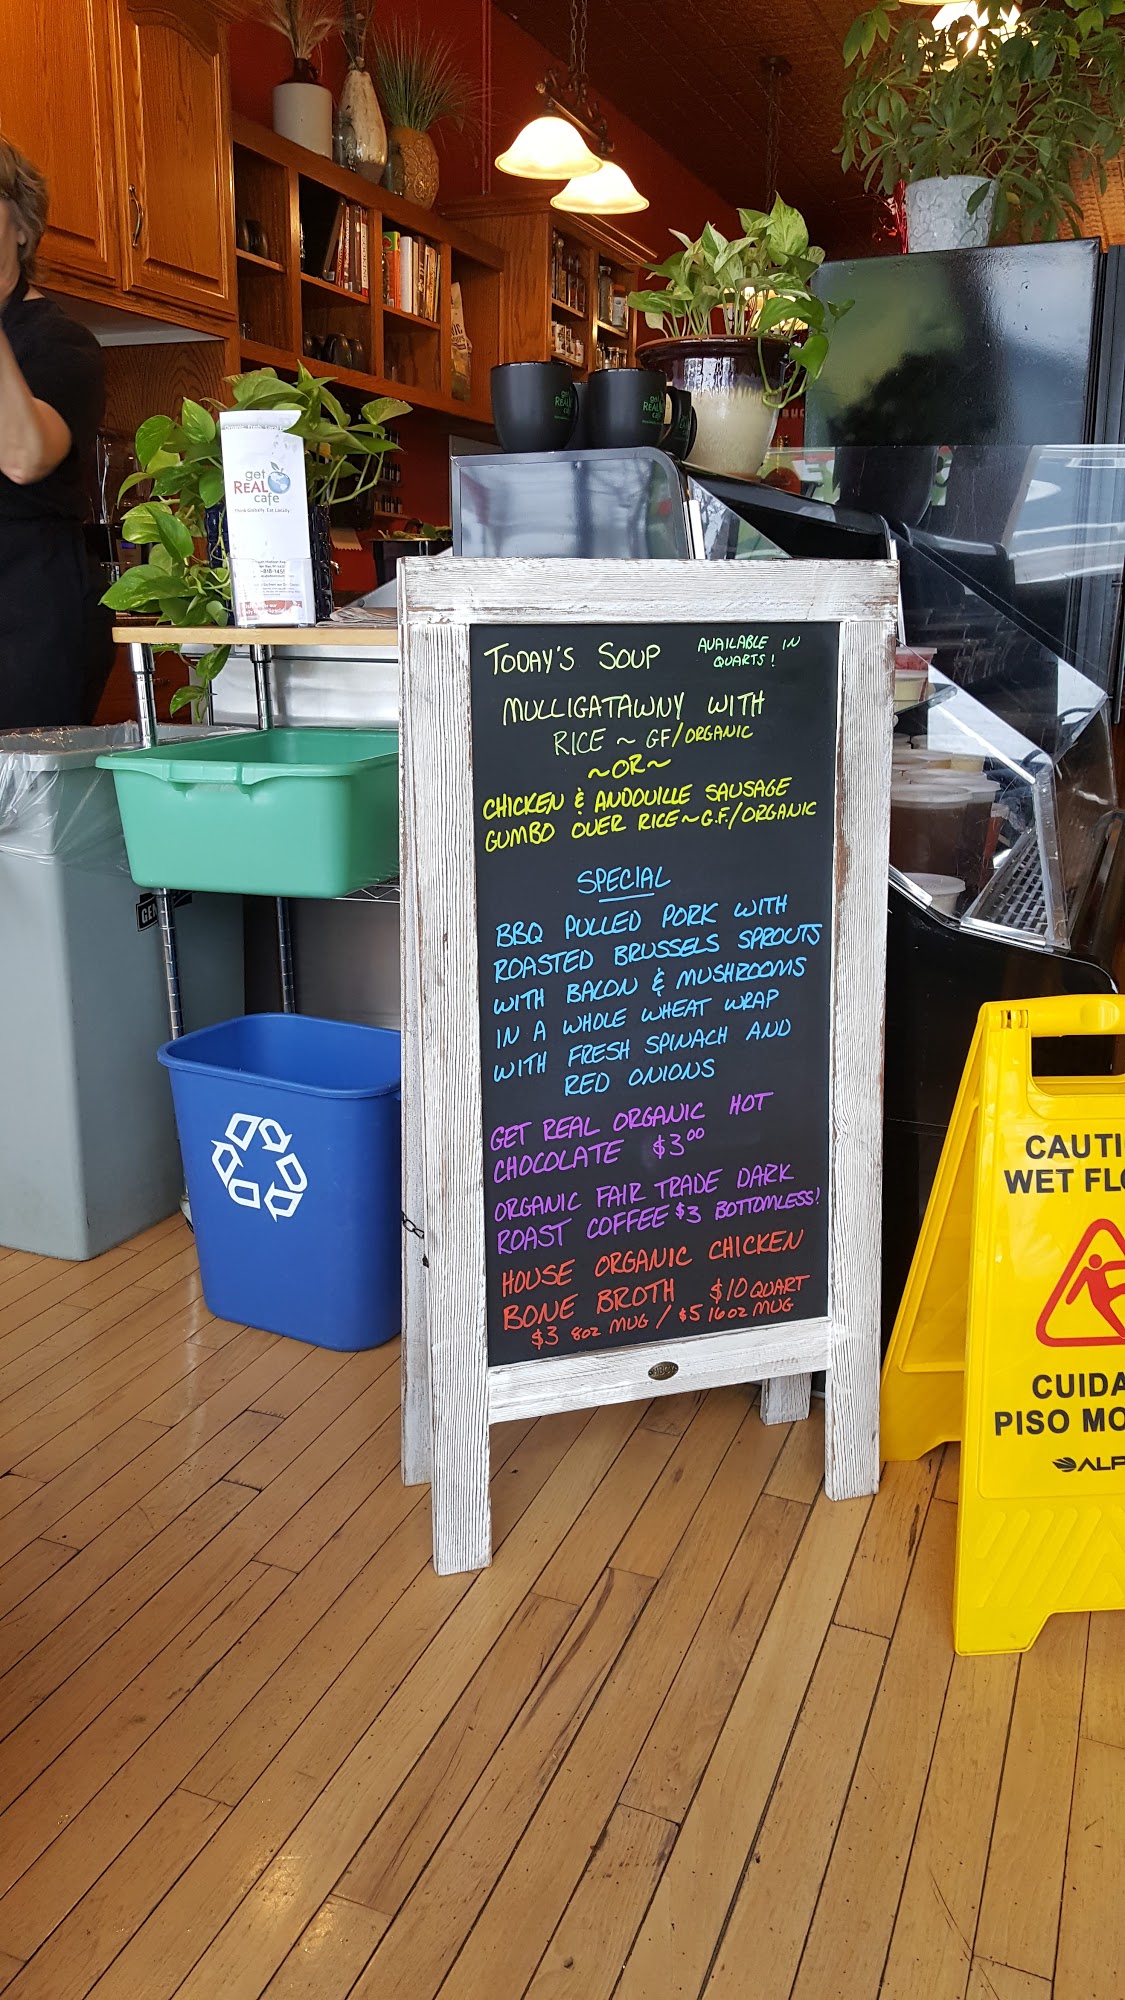 get
REAL
cafe
Think Globally. Eat Locally
get
REAL
cafe
TODAY'S SOUP AVAILABLE IN
QUARTS!
MULLIGATAWNY WITH
RICE ~ GF/ORGANIC
~OR~
CHICKEN & ANDOUILLE SAUSAGE
GUMBO OVER RICE ~ G.F./ORGANIC
SPECIAL
BBQ PULLED PORK WITH
ROASTED BRUSSELS SPROUTS
WITH BACON & MUSHROOMS
IN A WHOLE WHEAT WRAP
WITH FRESH SPINACH AND
RED ONIONS
GET REAL ORGANIC HOT
CHOCOLATE $3.00
ORGANIC FAIR TRADE DARK
ROAST COFFEE $3 BOTTOMLESS!
HOUSE ORGANIC CHICKEN
BONE BROTH $10 QUART
$3 8oz MUG / $5 16oz MUG
CAUTI
WET FLO
CUIDA
PISO MO
ALP